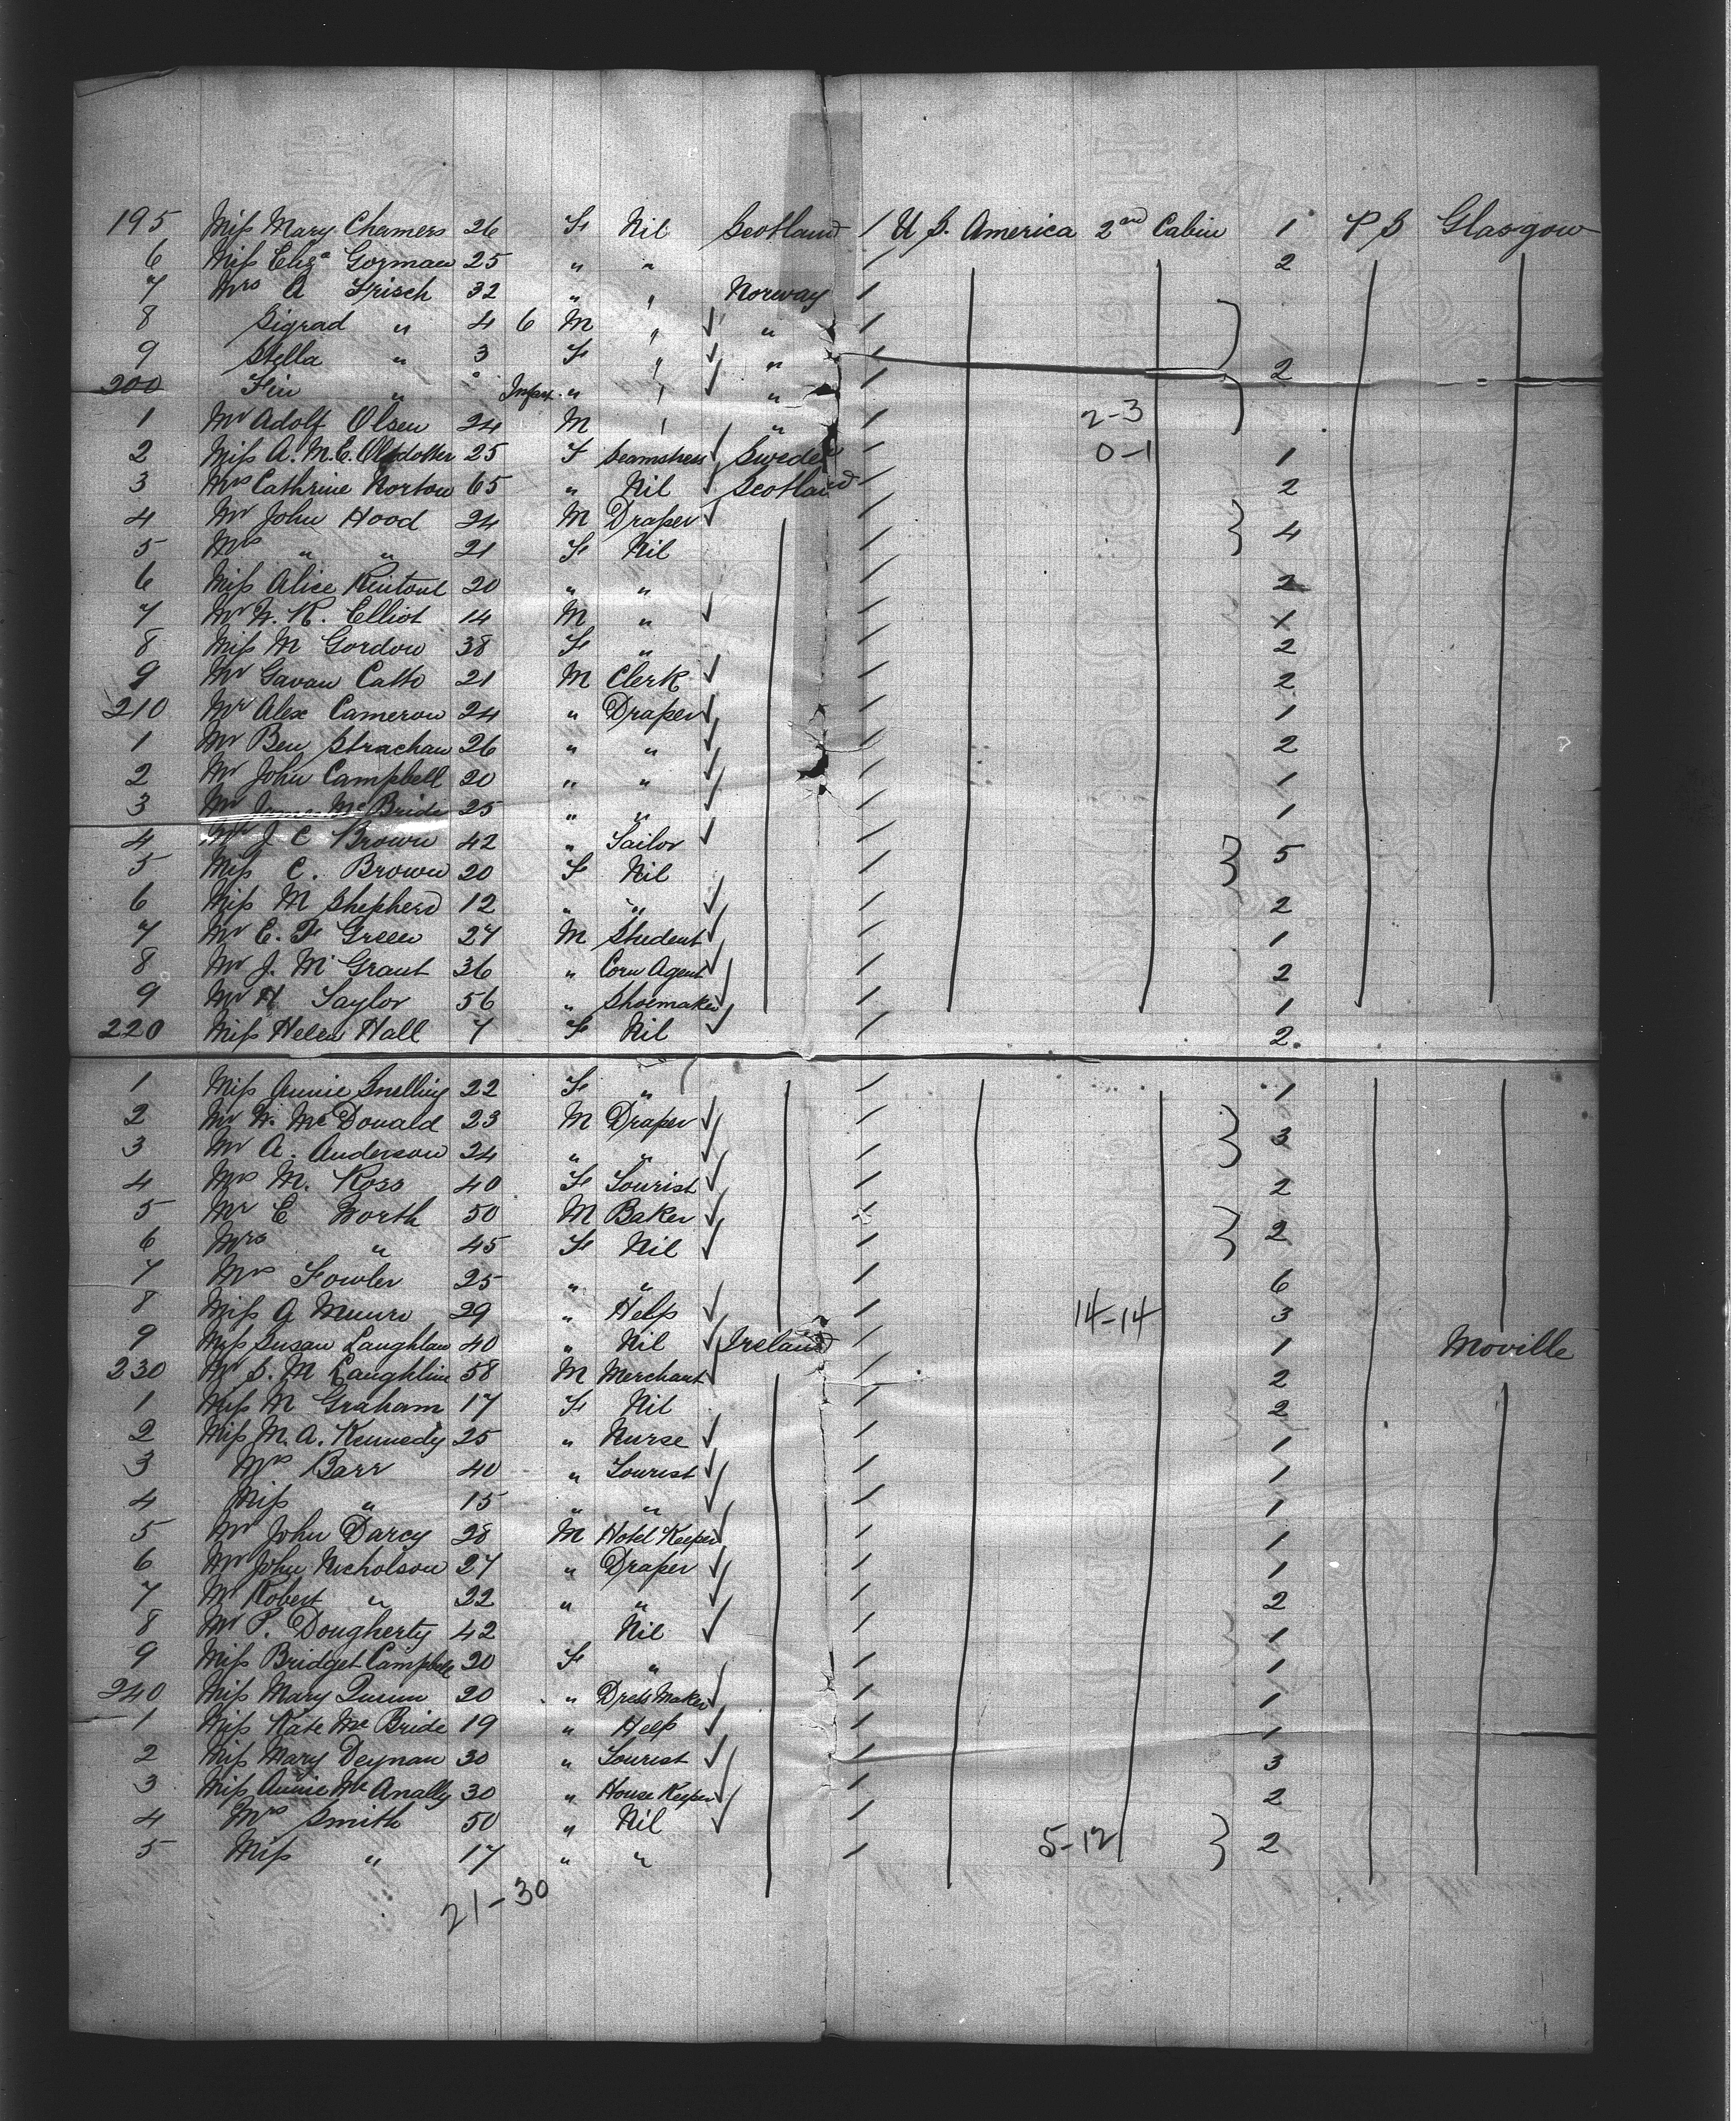 195 Miss Mary Chamers 26 F Nil Scotland / U S. America 2nd Cabin 1 P S Glasgow
6 Miss Eliza Gorman 25 " " / 2
7 Mrs A Frisch 32 " " Norway /
8 Sigrad " 4 6 M " ✓ " /
9 Stella " 3 F " ✓ " / 2
200 Fin " " Infant " " ✓ " /
1 Mr Adolf Olsen 24 M " " / 2-3
2 Miss A. M. C. 25 F Seamstress ✓ Sweden / 0-1 1
3 Mrs Cathrine Norton 65 " Nil ✓ Scotland / 2
4 Mr John Hood 24 M Draper ✓ / } 4
5 Mrs " " 21 F Nil /
6 Miss Alice Rintoul 20 " " / 2
7 Mr W. R. Elliot 14 M " ✓ /
8 Miss M Gordon 38 F " / 2
9 Mr Gavan Catto 21 M Clerk ✓ / 2
210 Mr Alex Cameron 24 " Draper ✓ / 1
1 Mr Ben Strachan 26 " " ✓ / 2
2 Mr John Campbell 20 " " ✓ / 1
3 Mr McBride 25 " " ✓ / 1
4 Mr J C Brown 42 " Sailor ✓ / } 5
5 Miss C. Brown 20 F Nil /
6 Miss M Shepherd 12 " " ✓ / 2
7 Mr C. F Green 27 M Student ✓ / 1
8 Mr J. M Grant 36 " Corn Agent ✓ / 2
9 Mr H Taylor 56 " Shoemaker ✓ / 1
220 Miss Helen Hall 7 F Nil ✓ / 2
1 Miss Annie Snelling 22 F " / 1
2 Mr W. McDonald 23 M Draper ✓ / } 3
3 Mr A. Anderson 24 " " ✓ /
4 Mrs M. Ross 40 F Tourist ✓ / 2
5 Mr C North 50 M Baker ✓ / } 2
6 Mrs " 45 F Nil ✓ /
7 Mrs Fowler 25 " " / 6
8 Miss A Munro 29 " Help ✓ / 14-14 3
9 Miss Susan Laughlan 40 " Nil ✓ Ireland / 1 Moville
230 Mr S. M Laughlin 58 M Merchant ✓ / 2
1 Miss M Graham 17 F Nil / 2
2 Miss M. A. Kennedy 25 " Nurse ✓ / 1
3 Mrs Barr 40 " Tourist ✓ / 1
4 Miss " 15 " " ✓ / 1
5 Mr John Darcy 28 M Hotel Keeper ✓ / 1
6 Mr John Nicholson 27 " Draper ✓ / 1
7 Mr Robert " 22 " " ✓ / 2
8 Mr P. Dougherty 42 Nil ✓ / 1
9 Miss Bridget Campbell 20 F " / 1
240 Miss Mary Quinn 20 " Dress Maker ✓ / 1
1 Miss Kate McBride 19 " Help ✓ / 1
2 Miss Mary Deynan 30 " Tourist ✓ / 3
3 Miss Annie McAnally 30 " House Keeper ✓ / 2
4 Mrs Smith 50 " Nil ✓ / } 2
5 Miss " 17 " " / 5-12
21-30